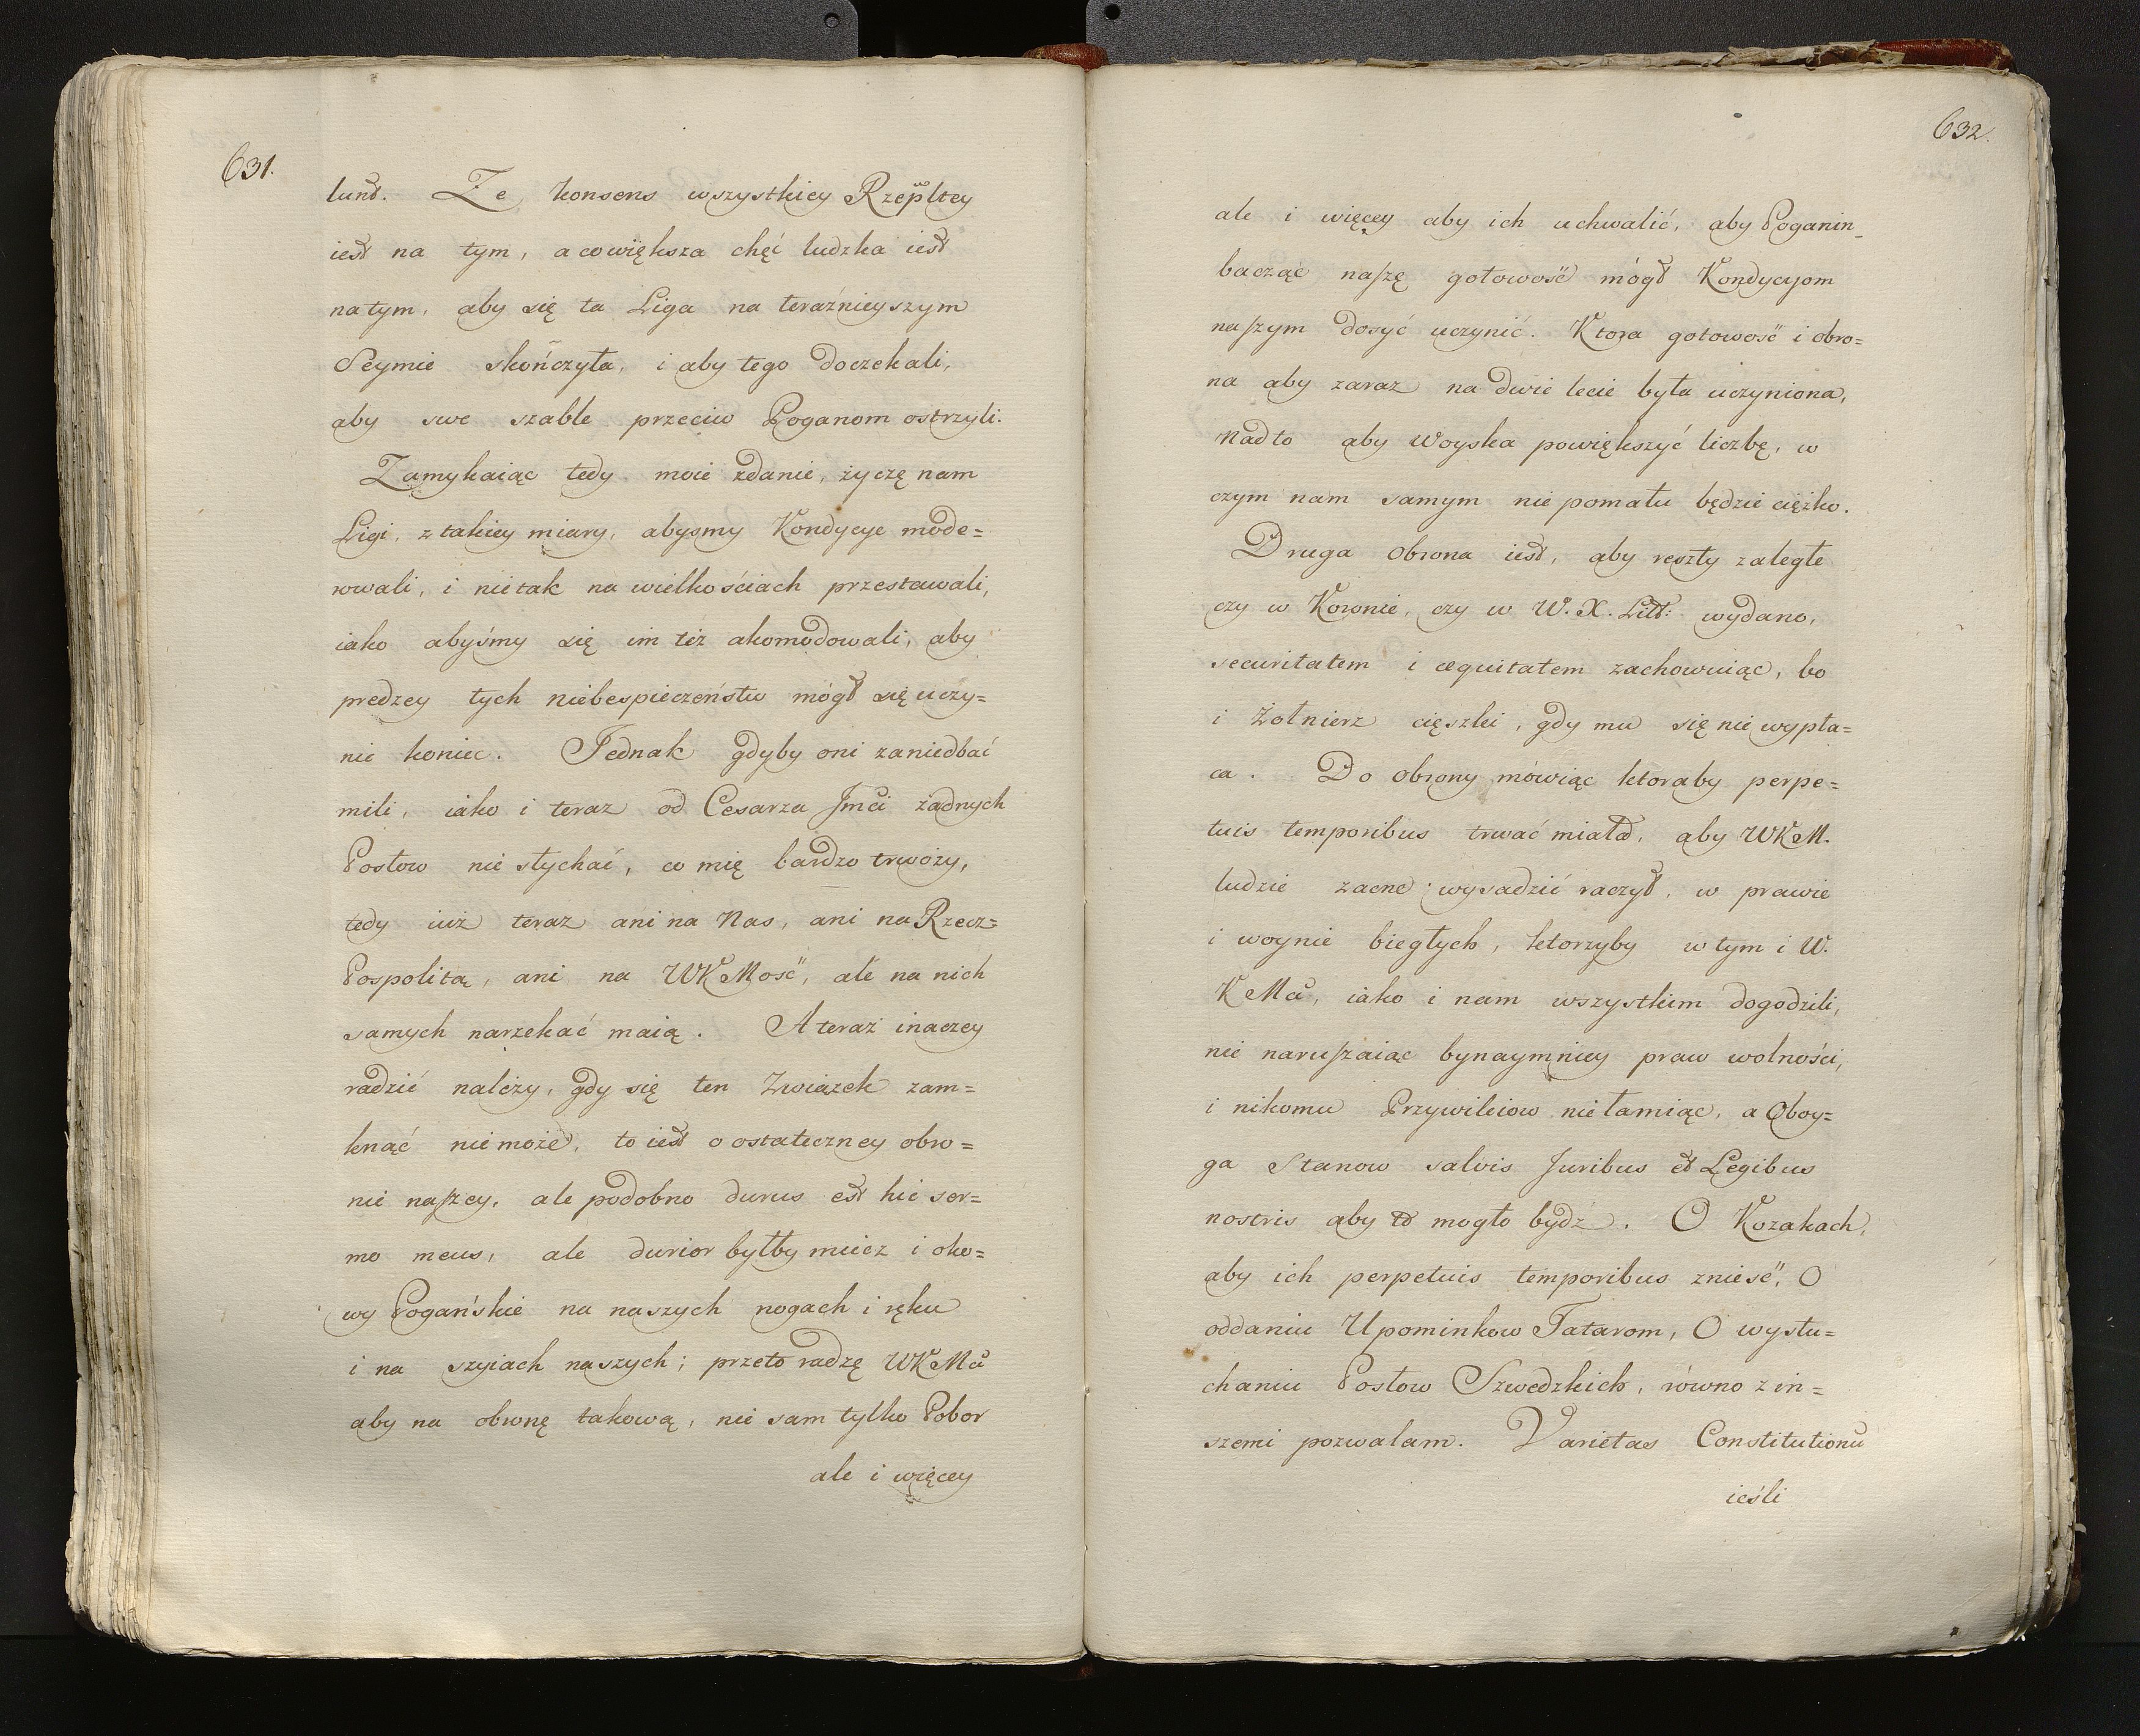 631.
lunt. Ze konsens wszystkiey Rzepltey
iest na tym, a cowiększa chęć ludzka iest
natym, aby się ta Liga na teraźnieyszym
Seymie skończyła, i aby tego doczekali,
aby swe szable przeciw Poganom ostrzyli.
Zamykaiąc tedy moie zdanie, życzę nam
Ligi, z takiey miary, abysmy Kondycye mode=
rowali, i nietak na wielkościach przestawali,
iako abyśmy się im też akomodowali, aby
predzey tych niebespieczeństw mógł się uczy=
nic koniec. Jednak gdyby oni zaniedbać
mili, iako i teraz od Cesarza Jmci żadnych
Posłow nie słychać, co mię bardzo trwoży,
tedy iuż teraz ani na Nas, ani na Rzecz=
Pospolitą, ani na WKMość, ale na nich
samych narzekać maią. A teraz inaczey
radzić należy, gdy się ten Związek zam=
knąć niemoże, to iest o ostateczney obro=
nie naszey, ale podobno durus est hic ser=
mo meus, ale durior byłby miecz i oko=
wy Pogańskie na naszych nogach i ręku
i na szyiach naszych; przeto radzę WKMci
aby na obronę takową, nie sam tylko Pobor
ale i więcey
632.
ale i więcey aby ich uchwalić, aby Poganin
bacząc naszę gotowość mógł Kondycyom
naszym dosyć uczynić. Ktora gotowość i obro=
na aby zaraz na dwie lecie była uczyniona,
Nadto aby Woyska powiększyć liczbę, w
czym nam samym nie pomału będzie ciężko.
Druga Obrona iest, aby reszty zaległe
czy w Kownie, czy w W. X. Litt: wydano,
securitatem i æquitatem zachowuiąc, bo
i Żołnierz cięszki, gdy mu się nie wypła=
ca. Do obrony mówiąc ktoraby perpe=
tuis temporibus trwać miała, aby WKM.
ludzie zacne wysadzić raczył, w prawie
i woynie biegłych, ktorzyby w tym i W.
KMci, iako i nam wszystkim dogodzili,
nie naruszaiąc bynaymniey praw wolności,
i nikomu Przywileiow niełamiąc, a Oboy=
ga Stanow salvis Juribus et Legibus
nostris aby to mogło bydź. O Kozakach,
aby ich perpetuis temporibus znieść, O
oddaniu Upominkow Tatarom, O wysłu=
chaniu Posłow Szwedzkich, równo z in=
szemi pozwalam. Varietas Constitutionu
ieśli